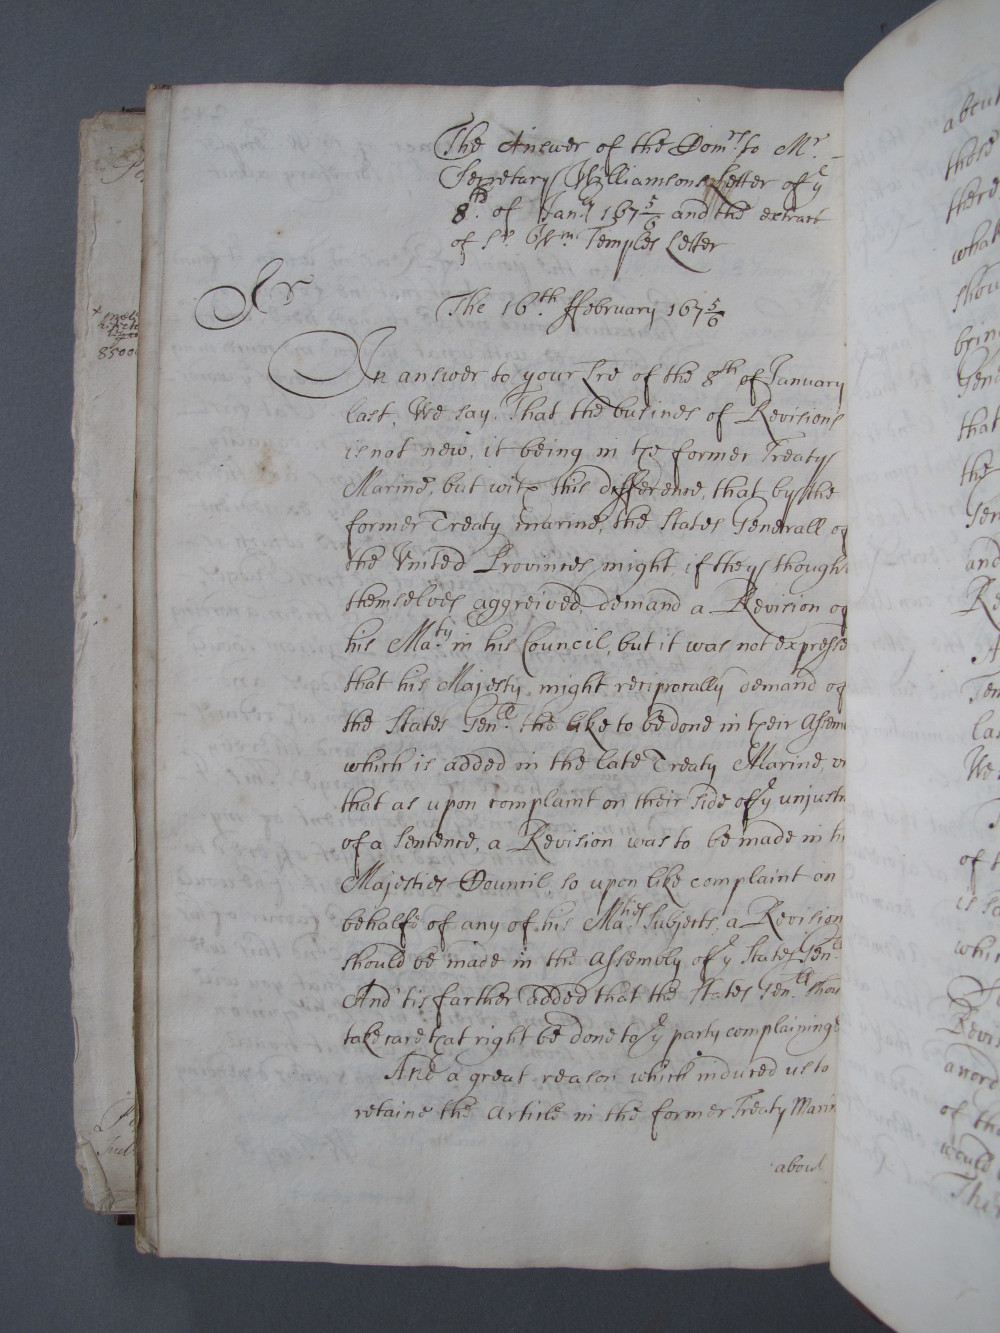 The Answer of the Com:rs to Mr.
Secretary Williamsons Letter of ye
8th. of Jan:ry 167 5/6 and the extract
of Sr. Wm. Temples Letter
Sr
The 16th. ffebruary 167 5/6
In answer to your Lre of the 8th of January
last, We say, That the busines of Revisions
is not new, it being in the former Treaty
Marine, but with this difference, that by the
former Treaty marine, the States Generall of
the United Provinces might, if they though
themselves aggreived, demand a Revision of
his Ma:ty in his Council, but it was not expresse
that his Majesty might reciprocally demand of
the States Gen:ll the like to be done in their Assem
which is added in the late Treaty Marine,
that as upon complaint on their side of ye unjustn
of a Sentence, a Revision was to be made in hi
Majesties Council, so upon like complaint on
behalfe of any of his Ma:ties Subjects, a Revision
should be made in the Assembly of ye States Gen:ll
And 'tis farther added that the States Gen:ll shou
take care that right be done to ye party complaining
And a great reason which induced us to
retaine the Article in the former Treaty Marin
about
8500
about
those
there
what
shou
brin
Gene
that
the
Gen
and
Re
Tem
las
We
of t
is so
whic
Revis
anoth
of the
would
This